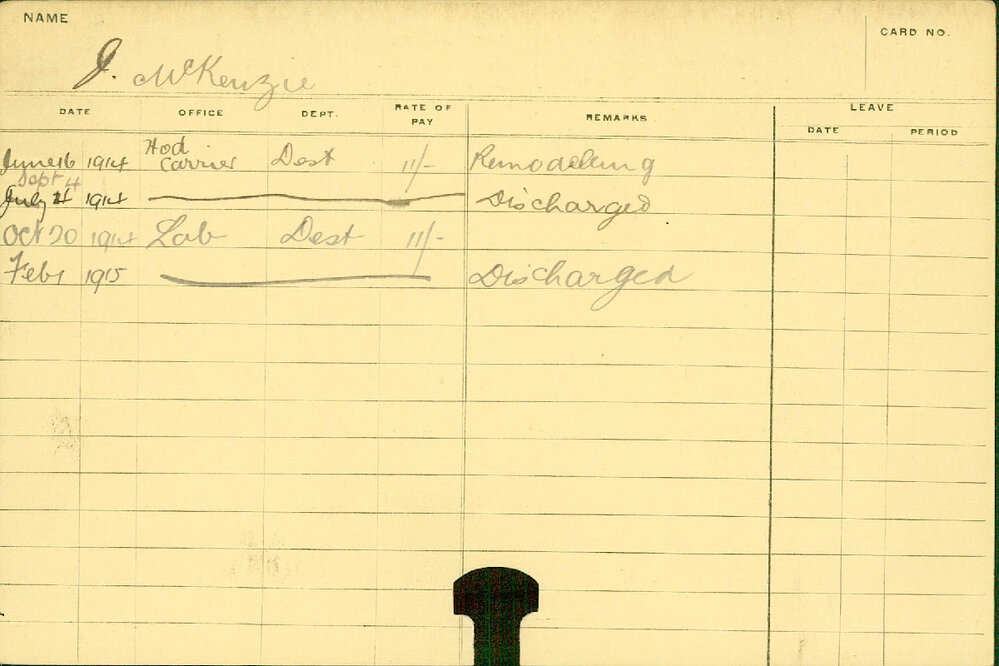 NAME
CARD NO.
J. McKenzie
DATE OFFICE DEPT. RATE OF PAY REMARKS LEAVE
DATE PERIOD
June 16 1914 Hod Carrier Dest 11/- Remodeling
Sept 4
July 1914 Discharged
Oct 20 1914 Lab Dest 11/-
Feb 1 1915 Discharged